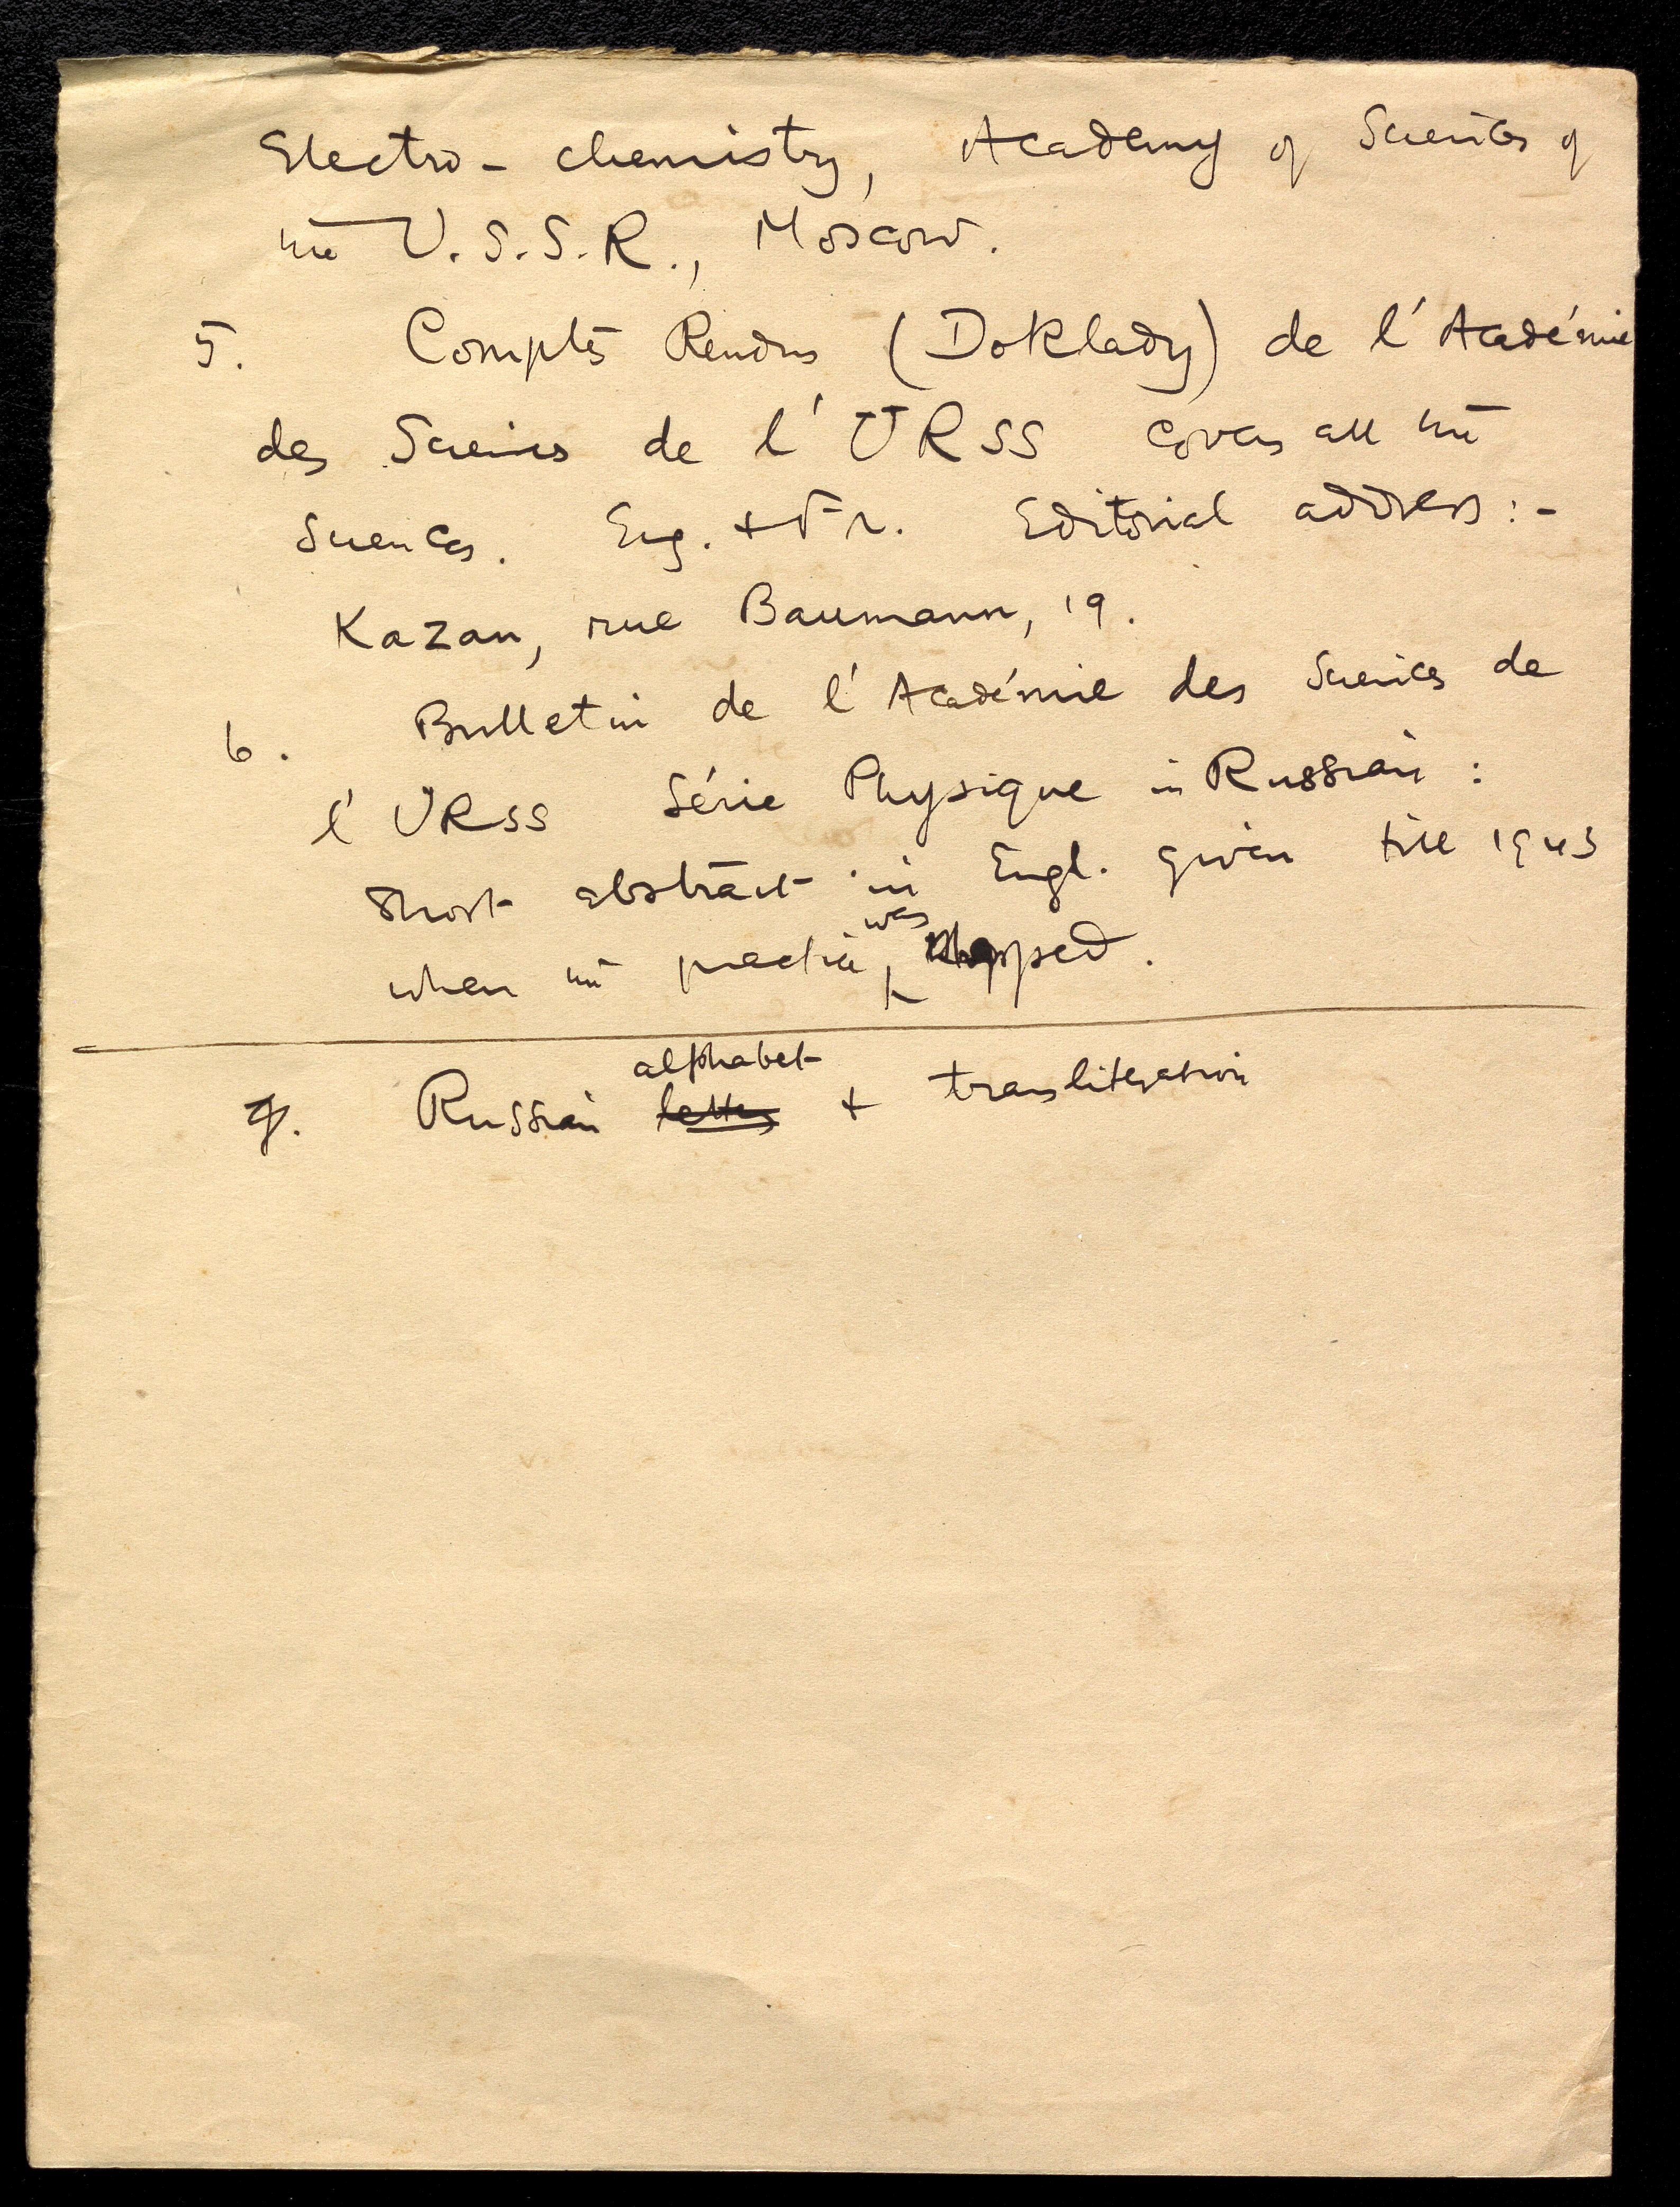 Electro - chemistry, Academy of Sciences of
the U.S.S.R., Moscow.
5. Comptes Rendus (Doklady) de l'Académie
des Sciences de l'URSS covers all the
Sciences. Eng. + Fr. Editorial address :-
Kazan, rue Baumann, 19.
6. Bulletin de l'Académie des Sciences de
l'URSS Série Physique in Russian :
Short abstract in Engl. given till 1943
when the practice was stopped.
7. Russian letters alphabet + transliteration